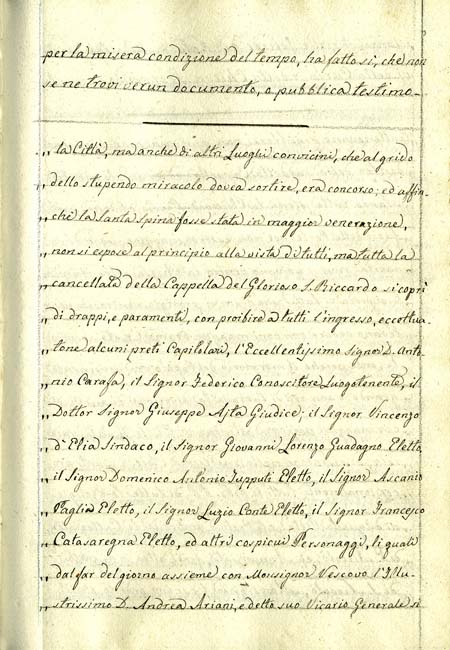 per la misera condizione del tempo, ha fatto sì, che non
se ne trovi verun documento, o pubblica testimo-
„ la Città, ma anche di altri Luoghi convicini, che al grido
dello stupendo miracolo dovea sortire, era concorso; ed affin-
„ chè la Santa Spina fosse stata in maggior venerazione,
„ non si espose al principio alla vista di tutti, ma tutta la
„ cancellata della Cappella del Glorioso S. Riccardo si coprì
„ di drappi, e paramenti, con proibire a tutti l'ingresso, eccettua-
„ tone alcuni preti Capitolari, l'Eccellentissimo Signor D. Anto-
„ nio Carafa, il Signor Federico Conoscitore Luogotenente, il
„ Dottor Signor Giuseppe Ajta Giudice; il Signor Vincenzo
„ d'Elia Sindaco, il Signor Giovanni Lorenzo Guadagno Eletto,
„ il Signor Domenico Antonio Jupputi Eletto, il Signor Ascanio
„ Paglia Eletto, il Signor Luzio Conte Eletto, il Signor Francesco
„ Catasaregna Eletto, ed altri cospicui Personaggi, li quali
„ dal far del giorno assieme con Monsignor Vescovo l'Illu-
„ strissimo D. Andrea Ariani, e detto suo Vicario Generale si